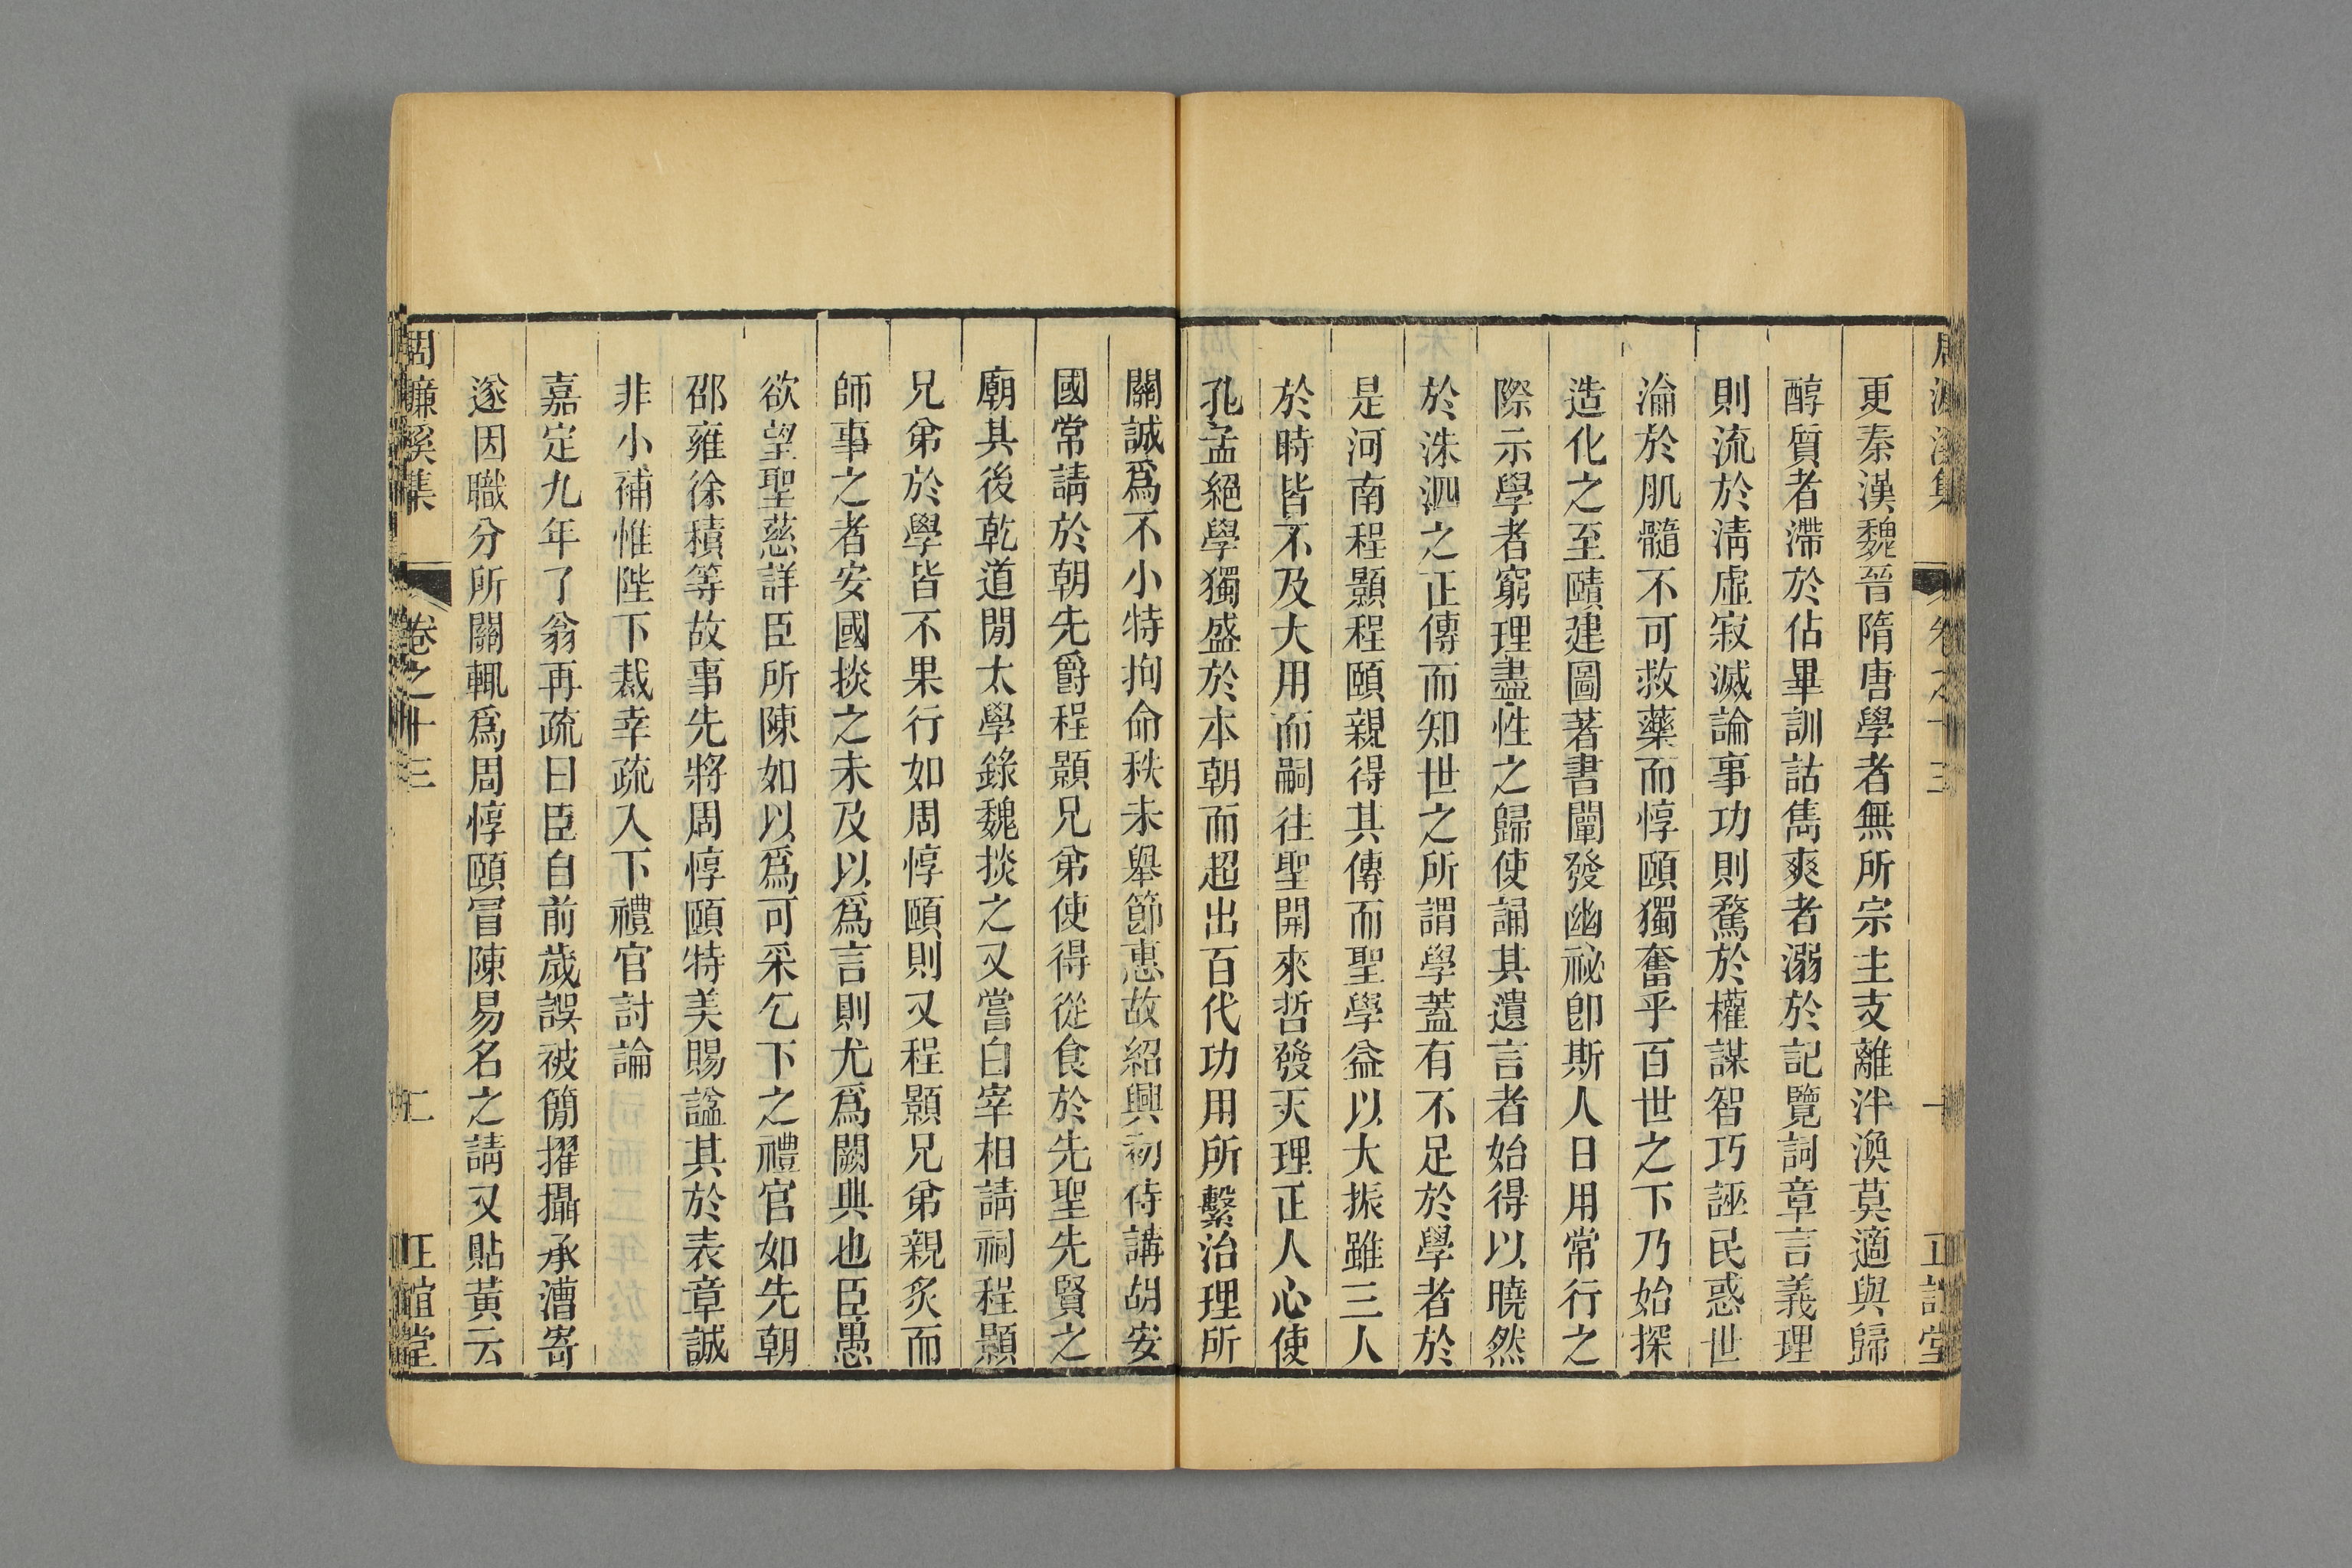 周濂溪集 卷之十三 一 正誼堂
更秦漢魏晉隋唐學者無所宗主支離泮渙莫適與歸
醇質者滯於佔畢訓詁雋爽者溺於記覽詞章言義理
則流於淸虛寂滅論事功則騖於權謀智巧誣民惑世
淪於肌髓不可救藥而惇頤獨奮乎百世之下乃始探
造化之至賾建圖著書闡發幽祕卽斯人日用常行之
際示學者窮理盡性之歸使誦其遺言者始得以曉然
於洙泗之正傳而知世之所謂學蓋有不足於學者於
是河南程顥程頤親得其傳而聖學益以大振雖三人
於時皆不及大用而嗣往聖開來哲發天理正人心使
孔孟絕學獨盛於本朝而超出百代功用所繫治理所
關誠爲不小特拘命秩未舉節惠故紹興初侍講胡安
國常請於朝先爵程顥兄弟使得從食於先聖先賢之
廟其後乾道閒太學錄魏掞之又嘗白宰相請祠程顥
兄弟於學皆不果行如周惇頤則又程顥兄弟親炙而
師事之者安國掞之未及以爲言則尤爲闕典也臣愚
欲望聖慈詳臣所陳如以爲可采乞下之禮官如先朝
邵雍徐積等故事先將周惇頤特美賜諡其於表章誠
非小補惟陛下裁幸疏入下禮官討論
嘉定九年了翁再疏曰臣自前歲誤被簡擢攝承漕寄
遂因職分所關輒爲周惇頤冒陳易名之請又貼黃云
周濂溪集 卷之十三 二 正誼堂